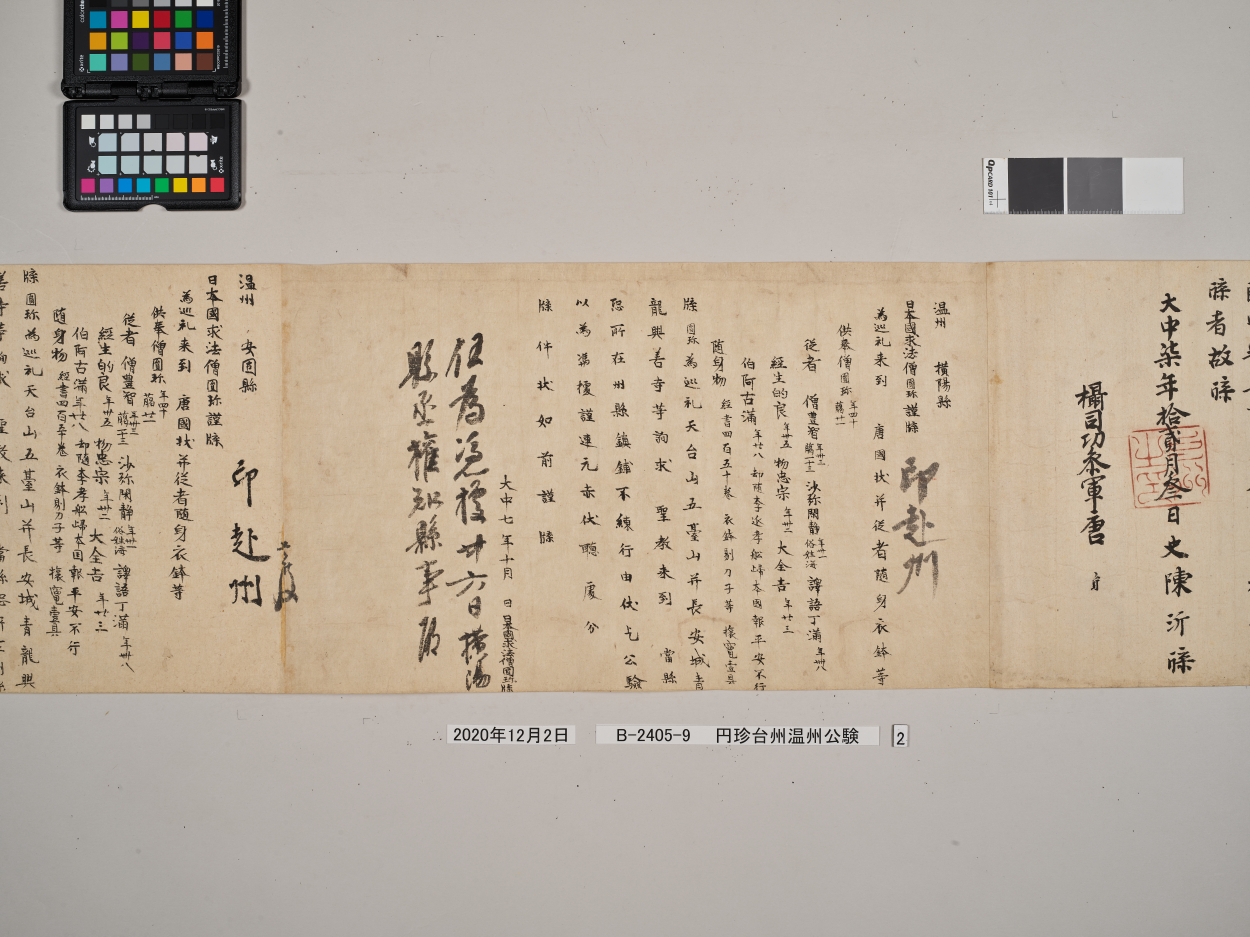 牒者故牒
大中柒年拾貳月叁日史陳沂牒
攝司功叅軍唐
温州 横陽縣
日本國求法僧圓珎謹牒
印赴州
為巡礼来到 唐國状并従者随身衣鉢等
供奉僧圓珎 年四十 﨟廿一
従者 僧豊智 年卅三 﨟一十三 沙弥閑静 年卅一 俗姓海 譯語丁滿 年卌八
經生的良 年卅五 物忠宗 年卅二 大全吉 年廿三
伯阿古滿 年廿八 却随李延孝舩歸本国報平安不行
随身物 經書四百五十巻 衣鉢剔刀子等 樻篭壹具
牒圓珎為巡礼天台山五臺山并長安城青
龍興善寺等詢求 聖教来到 當縣
恐所在州縣鎮鋪不練行由伏乞公驗
以為憑據謹連元赤伏聽處分
牒件状如前謹牒
大中七年十月 日日本國求法僧圓珎牒
任為憑據廿六日横陽
縣丞權知縣事
温州 安固縣
日本國求法僧圓珎謹牒
印赴州
為巡礼来到 唐國状并従者随身衣鉢等
供奉僧圓珎 年四十 﨟廿一
従者 僧豊智 年卅三 﨟十三 沙弥閑静 年卅一 俗姓海 譯語丁滿 年卌八
經生的良 年卅五 物忠宗 年卅二 大全吉 年廿三
伯阿古滿 年廿八 却随李孝舩歸本国報平安不行
随身物 經書四百五十巻 衣鉢剔刀子等 樻篭壹具
牒圓珎為巡礼天台山五臺山并長安城青龍興
善寺等詢求
2020年12月2日
B-2405-9 円珍台州温州公験
2
QPCARD 101